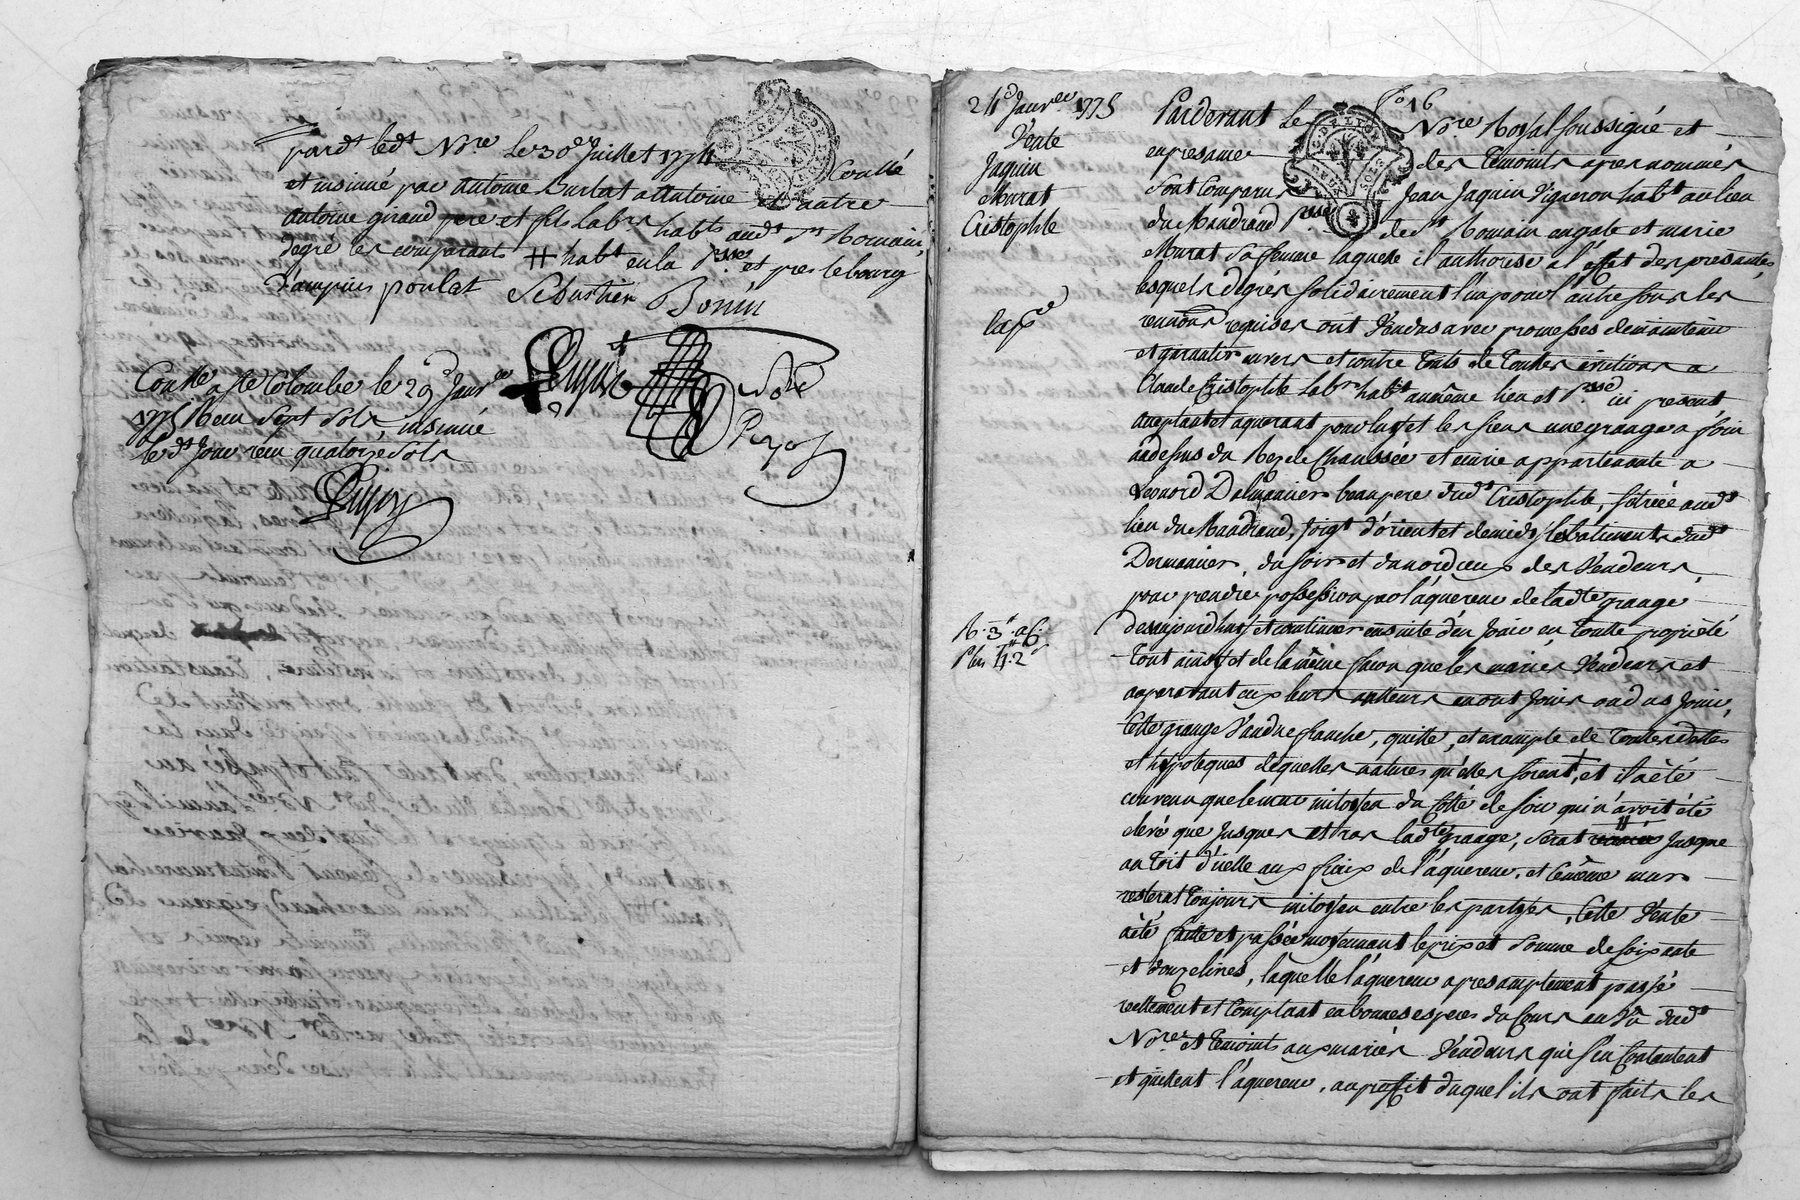 pard.t led.t No.re le 30e Juillet 1774 Conllé
et insinué par antoine Burlat attutoire et autre
antoine giraud pere et fils lab.rs hab.ts aud.t s.t Romain
degré les comparants # hab.t en la p.sse et pres le bourg
d'ampuis poulat Sebastien Bonin
Conllé a Ste Colombe le 29e Janvier
1775 Reçu sept sols, insinué
led.t Jour reçu quatorze sols
Pujon
24e Janvier 1775
Vente
Jaquin
Murat
Cristophle
fo 16
Pardevant le No.re Royal soussigné et
en presance des temoints apres nommés
sont comparus Jean Jaquin Vigneron hab.t au lieu
du Mandrand p.sse de s.t Romain en gale et marie
Murat sa femme laquelle il authorise a l'effet des presantes
lesquels degrés solidairement l'un pour l'autre sous les
renons requises ont Vendus avec promesses de maintenir
et garantir envers et contre touts de touttes evictions a
Claude Cristophle lab.r hab.t au même lieu et p.sse ici present
acceptant et aquerant pour luy et les siens une grange a foin
au dessus du Rez de Chaussée et ecurie appartenante a
Leonord Dalmanier beaupere dud.t Cristophle, scituée aud.t
lieu du Mandrand, joig.t d'orient et de midy les batiments dud.t
Dermanier, du soir et du nord ceux des Vendeurs,
pour prendre possession par l'aquereur de lad.te grange
des aujourdhuy et continuer ensuite d'en jouir en toutte proprieté
tout ainsy et de la même façon que les mariés Vendeurs et
avant eux leurs autheurs en ont jouis ou dus jouir,
Cette grange Vandue franche, quitte, et exampte de touttes dettes
et hypoteques de quelles natures qu'elles soient, et il a été
convenu que le mur mitoyen du Cotté de soir qui n'avoit été
elevé que jusques et ras lad.te grange, serat jusque
au toit d'icelle aux fraix de l'aquereur, et le même mur
resterat toujours mitoyen entre les partyes, Cette Vente
a été faitte et passée moyennant le prix et somme de soixante
et douze livres, laquelle l'aquereur a presamptement payé
reellement et Comptant en bonnes especes du Cours au Vu dud.t
No.re et temoints aux mariés Vendeurs qui s'en Contentent
et quittent l'aquereur, au proffit duquel ils ont faits les